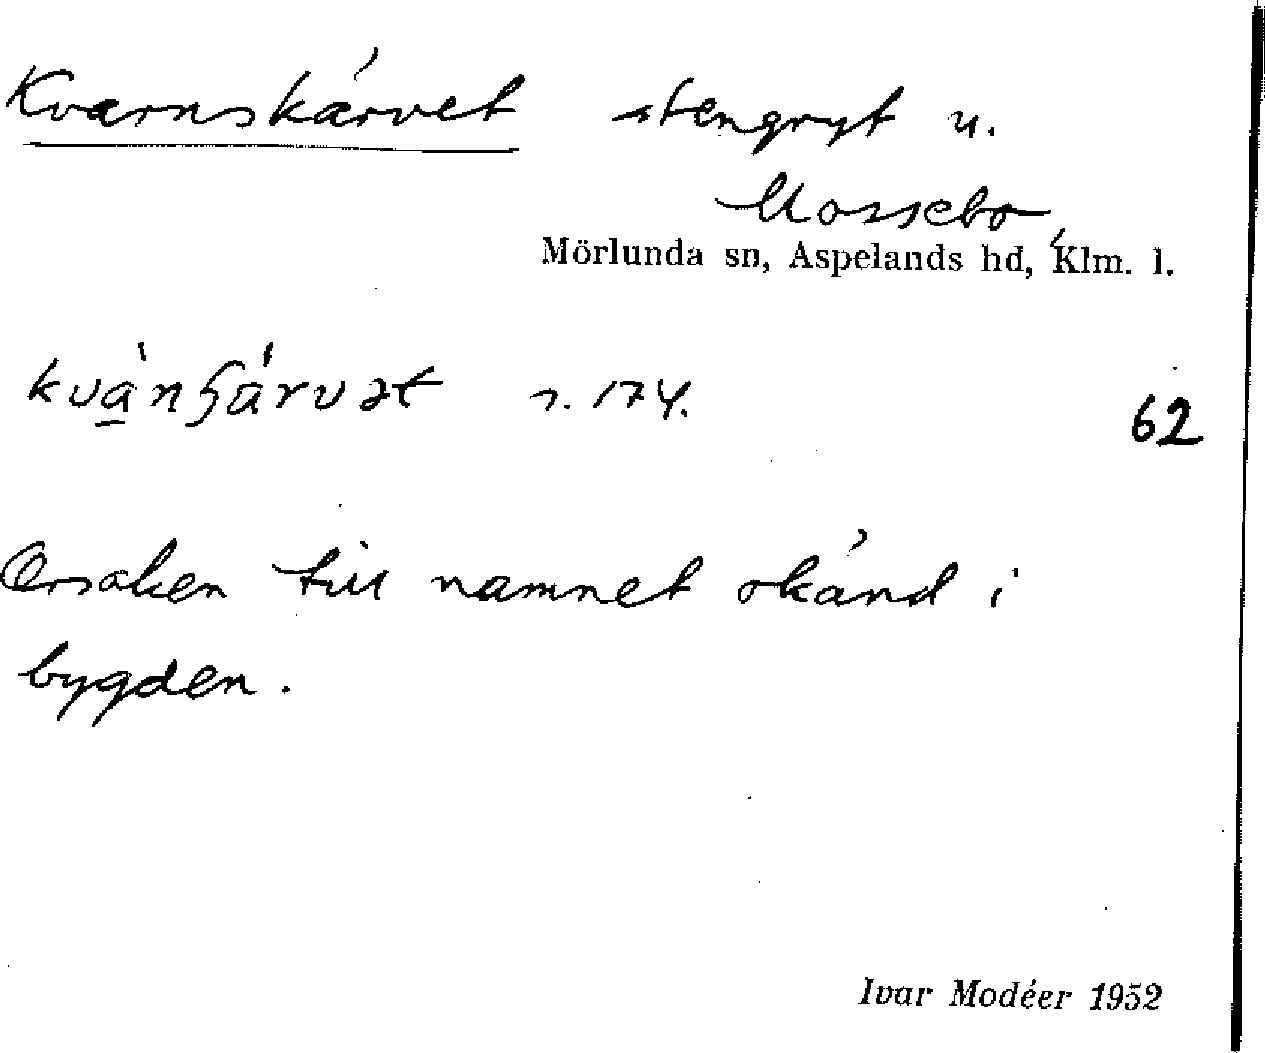 Kvarnskärvet stengryt u.
Mossebo,
Mörlunda sn, Aspelands hd, Klm. l.
kvànʃárvət s. 174.
62
Orsaken till namnet okänd i
bygden.
Ivar Modéer 1952